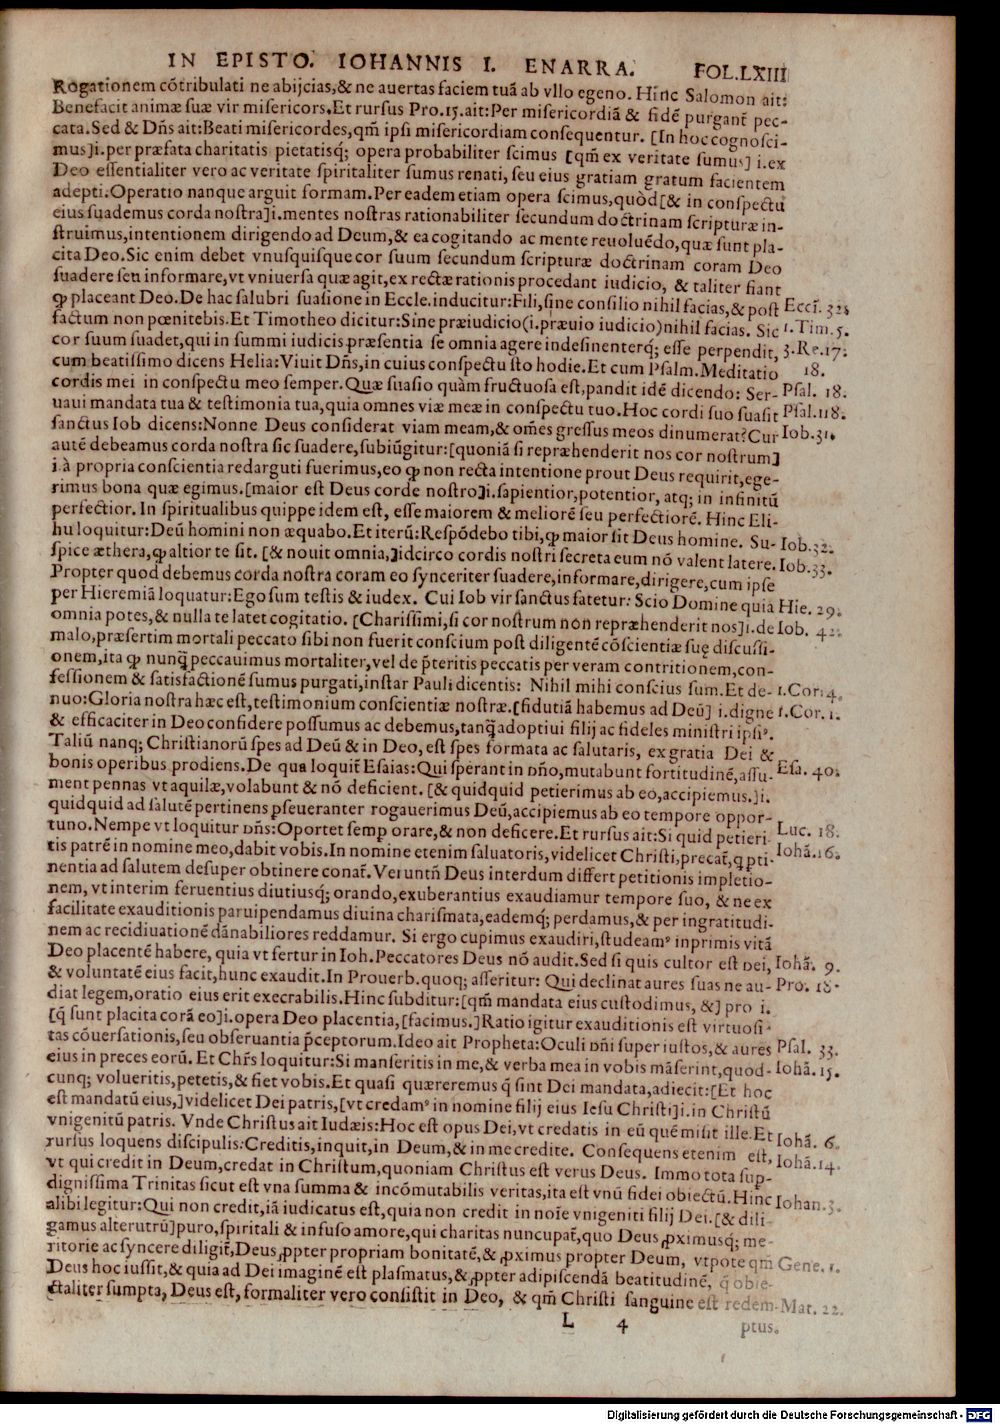 IN EPISTO. IOHANNIS I. ENARRA. FOL.LXIII
Rogationem cōtribulati ne abijcias,& ne auertas faciem tuā ab vllo egeno. Hinc Salomon ait:
Benefacit animæ suæ vir misericors.Et rursus Pro.15.ait:Per misericordiā & fidē purgant̄ pec-
cata.Sed & Dñs ait:Beati misericordes,qm̄ ipsi misericordiam consequentur. [In hoc cognosci-
mus]i.per præfata charitatis pietatisq; opera probabiliter scimus [qm̄ ex veritate sumus] i.ex
Deo essentialiter vero ac veritate spiritaliter sumus renati, seu eius gratiam gratum facientem
adepti.Operatio nanque arguit formam.Per eadem etiam opera scimus,quòd[& in conspectu
eius suademus corda nostra]i.mentes nostras rationabiliter secundum doctrinam scripturæ in-
struimus,intentionem dirigendo ad Deum,& ea cogitando ac mente reuoluēdo,quæ sunt pla-
cita Deo.Sic enim debet vnusquisque cor suum secundum scripturæ doctrinam coram Deo
suadere seu informare,vt vniuersa quæ agit,ex rectæ rationis procedant iudicio, & taliter fiant
ꝙ placeant Deo.De hac salubri suasione in Eccle.inducitur:Fili,sine consilio nihil facias,& post Eccī. 32.
factum non pœnitebis.Et Timotheo dicitur:Sine præiudicio(i.præuio iudicio)nihil facias. Sic 1.Tim.5.
cor suum suadet,qui in summi iudicis præsentia se omnia agere indesinenterq; esse perpendit, 3.Re.17.
cum beatissimo dicens Helia:Viuit Dñs,in cuius conspectu sto hodie.Et cum Psalm.Meditatio 18.
cordis mei in conspectu meo semper.Quæ suasio quàm fructuosa est,pandit idē dicendo: Ser- Psal. 18.
uaui mandata tua & testimonia tua,quia omnes viæ meæ in conspectu tuo.Hoc cordi suo suasit Psal.118.
sanctus Iob dicens:Nonne Deus considerat viam meam,& om̄es gressus meos dinumerat?Cur Iob.31.
autē debeamus corda nostra sic suadere,subiūgitur:[quoniā si repræhenderit nos cor nostrum]
i.à propria conscientia redarguti fuerimus,eo ꝙ non recta intentione prout Deus requirit,ege-
rimus bona quæ egimus.[maior est Deus corde nostro]i.sapientior,potentior, atq; in infinitū
perfectior. In spiritualibus quippe idem est, esse maiorem & meliorē seu perfectiorē. Hinc Eli-
hu loquitur:Deū homini non æquabo.Et iterū:Respōdebo tibi,ꝙ maior sit Deus homine. Su- Iob.32.
spice æthera,ꝙ altior te sit. [& nouit omnia,]idcirco cordis nostri secreta eum nō valent latere. Iob.33.
Propter quod debemus corda nostra coram eo synceriter suadere,informare,dirigere,cum ipse
per Hieremiā loquatur:Ego sum testis & iudex. Cui Iob vir sanctus fatetur: Scio Domine quia Hie. 29.
omnia potes,& nulla te latet cogitatio. [Charissimi,si cor nostrum non repræhenderit nos]i.de Iob. 42.
malo,præsertim mortali peccato sibi non fuerit conscium post diligentē cōscientiæ suę discussi-
onem,ita ꝙ nunq̄ peccauimus mortaliter,vel de p̄teritis peccatis per veram contritionem,con-
fessionem & satisfactionē sumus purgati,instar Pauli dicentis: Nihil mihi conscius sum.Et de- 1.Cor.4.
nuo:Gloria nostra hæc est,testimonium conscientiæ nostræ.[fidutiā habemus ad Deū] i.digne 1.Cor. 1.
& efficaciter in Deo confidere possumus ac debemus,tanq̄ adoptiui filij ac fideles ministri ipsiꝰ.
Taliū nanq; Christianorū spes ad Deū & in Deo,est spes formata ac salutaris, ex gratia Dei &
bonis operibus prodiens.De qua loquit̄ Esaias:Qui sperant in dño,mutabunt fortitudinē,assu- Esa. 40.
ment pennas vt aquilæ,volabunt & nō deficient. [& quidquid petierimus ab eo,accipiemus.]i.
quidquid ad salutē pertinens ꝑseueranter rogauerimus Deū,accipiemus ab eo tempore oppor-
tuno.Nempe vt loquitur dñs:Oportet semp orare,& non deficere.Et rursus ait:Si quid petieri Luc. 18.
tis patrē in nomine meo,dabit vobis.In nomine etenim saluatoris,videlicet Christi,precat̄,q pti- Iohā.16.
nentia ad salutem desuper obtinere conat̄. Veruntn̄ Deus interdum differt petitionis impletio-
nem, vt interim feruentius diutiusq; orando,exuberantius exaudiamur tempore suo, & ne ex
facilitate exauditionis paruipendamus diuina charismata,eademq; perdamus,& per ingratitudi-
nem ac recidiuationē dānabiliores reddamur. Si ergo cupimus exaudiri,studeamꝰ inprimis vitā
Deo placentē habere, quia vt fertur in Ioh.Peccatores Deus nō audit.Sed si quis cultor est Dei, Iohā. 9.
& voluntatē eius facit,hunc exaudit.In Prouerb.quoq; asseritur: Qui declinat aures suas ne au- Pro. 18.
diat legem,oratio eius erit execrabilis.Hinc subditur:[qm̄ mandata eius custodimus, &] pro i.
[q̄ sunt placita corā eo]i.opera Deo placentia,[facimus.]Ratio igitur exauditionis est virtuosi-
tas cōuersationis,seu obseruantia p̄ceptorum.Ideo ait Propheta:Oculi dñi super iustos,& aures Psal. 33.
eius in preces eorū. Et Chr̄s loquitur:Si manseritis in me,& verba mea in vobis māserint,quod- Iohā. 15.
cunq; volueritis,petetis,& fiet vobis.Et quasi quæreremus q̄ sint Dei mandata,adiecit:[Et hoc
est mandatū eius,]videlicet Dei patris,[vt credamꝰ in nomine filij eius Iesu Christi]i.in Christū
vnigenitū patris. Vnde Christus ait Iudæis:Hoc est opus Dei,vt credatis in eū quē misit ille.Et Iohā. 6.
rursus loquens discipulis:Creditis,inquit,in Deum,& in me credite. Consequens etenim est, Iohā.14.
vt qui credit in Deum,credat in Christum,quoniam Christus est verus Deus. Immo tota sup-
dignissima Trinitas sicut est vna summa & incōmutabilis veritas,ita est vnū fidei obiectū.Hinc Iohan.3.
alibi legitur:Qui non credit,iā iudicatus est,quia non credit in noīe vnigeniti filij Dei.[& dili-
gamus alterutrū]puro,spiritali & infuso amore,qui charitas nuncupat̄,quo Deus ꝓximusq; me-
ritorie ac syncere diligit̄,Deus ꝓpter propriam bonitatē,& ꝓximus propter Deum, vtpote qm̄ Gene.1.
Deus hoc iussit,& quia ad Dei imaginē est plasmatus,& ꝓpter adipiscendā beatitudinē, q̄ obie-
ctaliter sumpta, Deus est, formaliter vero consistit in Deo, & qm̄ Christi sanguine est redem- Mat. 22.
L 4 ptus.
Digitalisierung gefördert durch die Deutsche Forschungsgemeinschaft - DFG